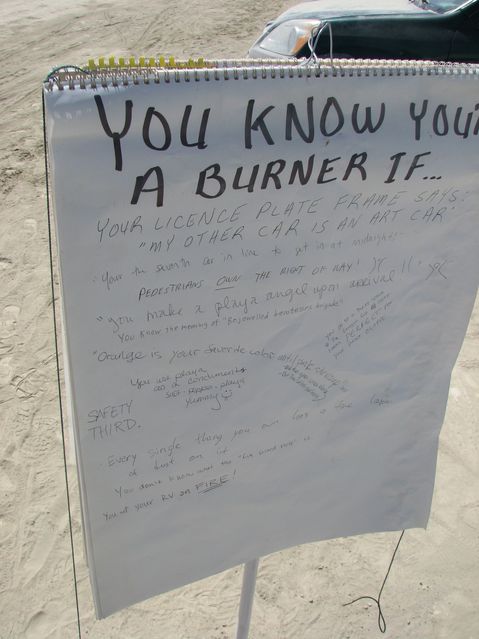 YOU KNOW YOU'
A BURNER IF...
YOUR LICENCE PLATE FRAME SAYS:
"MY OTHER CAR IS AN ART CAR"
Your the seventh car in line to get in at midnight!
PEDESTRIANS OWN THE RIGHT OF WAY!
"you make a playa angel upon arrival!!
You Know the meaning of "Bejewelled
"Orange is your favorite color
You use playa
as a condiment
salt, pepper, playa
yummy
SAFETY
THIRD.
Every single thing you own has a fine
of dust on it
You don't know what the is
You set your RV on FIRE!